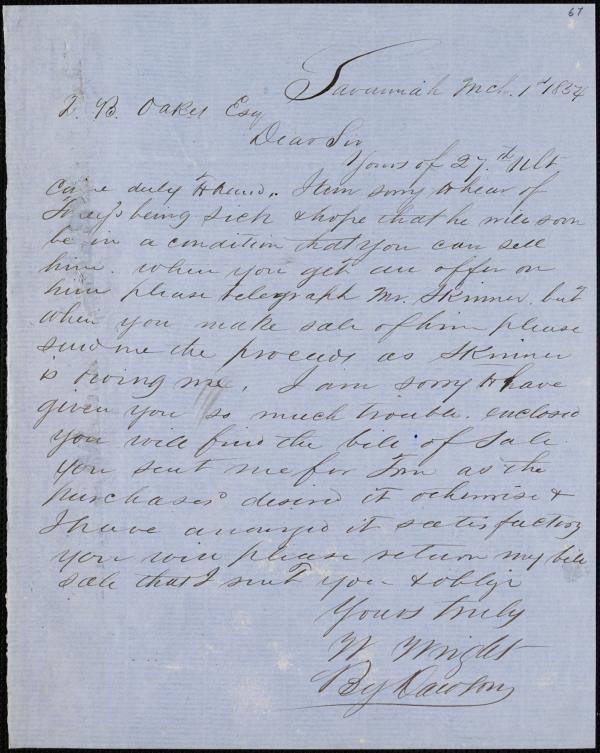 67
Savannah Mch. 1st 1854
Z. B. Oakes Esq
Dear Sir
Yours of 27th Ult
came duly to hand. I am sorry to hear of
being sick & hope that he will soon
be in a condition that you can sell
him. when you get an offer on
him please telegraph Mr. Skinner. but
when you make sale of him please
send me the proceeds as Skinner
is owing me. I am sorry to have
given you so much trouble. enclosed
you will find the bill of Sale
you sent me for Tom as the
purchaser desired it otherwise &
I have arranged it satisfactory
you will please return my bill
sale that I sent you & oblige
Yours truly
W Wright
By Dawson